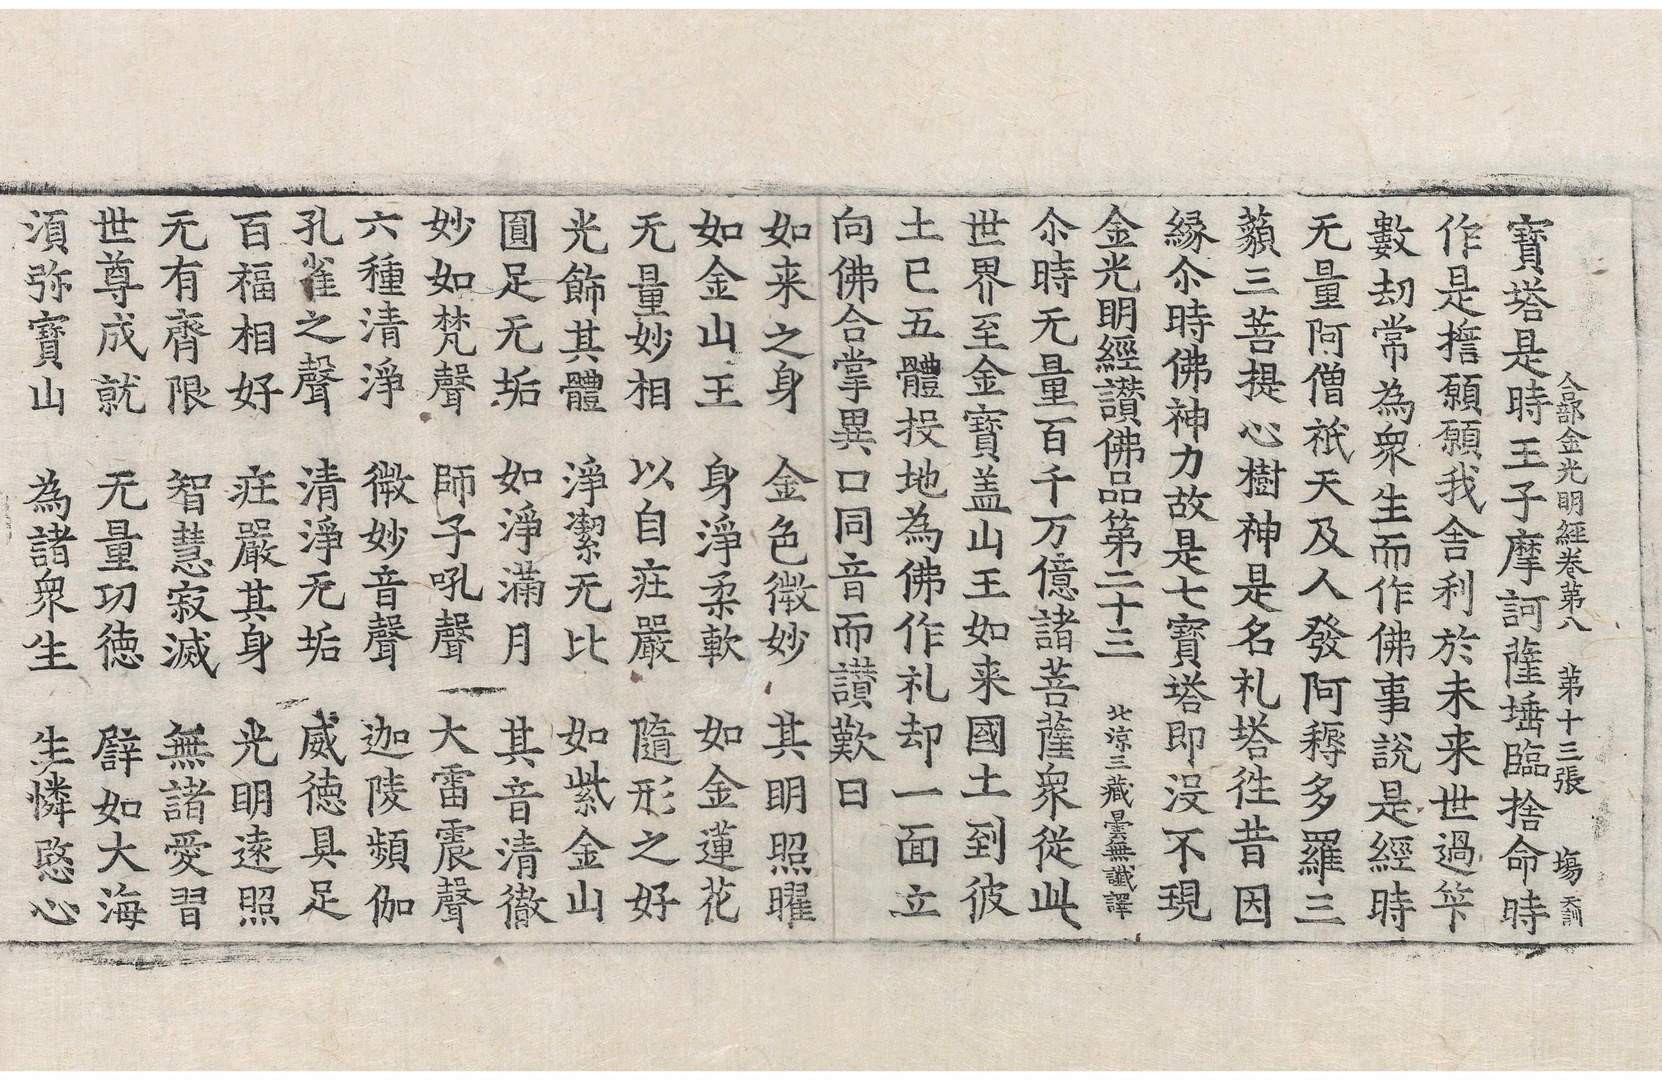 寶塔是時王子摩訶薩埵臨捨命時
合部金光明經卷第八　第十三張　塲
作是擔願願我舍利於未来世過筭
數劫常為衆生而作佛事說是經時
无量阿僧祇天及人發阿耨多羅三
藐三菩提心樹神是名礼塔徃昔因
緣尒時佛神力故是七寶塔即没不現
金光明經讃佛品第二十三　北凉三藏曇無讖譯
尒時无量百千万億諸菩薩衆從此
世界至金寶盖山王如来國土到彼
土已五體投地為佛作礼却一面立
向佛合掌異口同音而讃歎曰
如来之身　金色微妙　其明照曜
如金山王　身淨柔軟　如金蓮花
无量妙相　以自庄嚴　隨形之好
光飾其體　淨潔无比　如紫金山
圓足无垢　如淨滿月　其音清徹
妙如梵聲　師子吼聲　大雷震聲
六種清淨　微妙音聲　迦陵頻伽
孔雀之聲　清淨无垢　威德具足
百福相好　庄嚴其身　光明遠照
无有齊限　智慧寂滅　無諸愛習
世尊成就　无量功徳　譬如大海
湏弥寶山　為諸衆生　生憐愍心